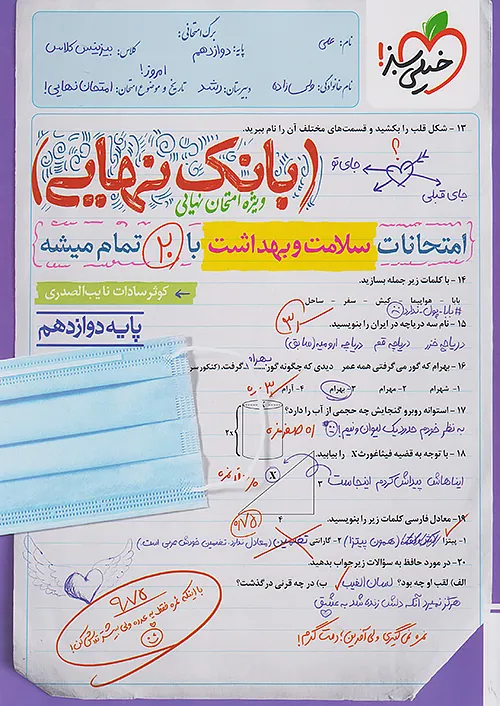 خیلی سبز!
برگ امتحانی:
نام: علی
پایه: دوازدهم
کلاس: بیزینس کلاس
نام خانوادگی: ولی‌زاده
دبیرستان: رشد
تاریخ و موضوع امتحان: امروز! امتحان نهایی!
۱۳ - شکل قلب را بکشید و قسمت‌های مختلف آن را نام ببرید.
؟
جای تو
جای قبلی
(بانک نهایی)
ویژه امتحان نهایی
امتحانات سلامت و بهداشت با ۲۰ تمام میشه
کوثر سادات نایب‌الصدری
پایه دوازدهم
۱۴ - با کلمات زیر جمله بسازید.
بابا - هواپیما - کیش - سفر - ساحل
#بابا_پول_نداره
۱۵ - نام سه دریاچه در ایران را بنویسید.
دریاچه خزر دریاچه قم دریاچه ارومیه (سابق)
۱۶ - بهرام که گور می‌گرفتی همه عمر دیدی که چگونه گور بهرام گرفت.
۱- شهرام ۲- مهرام ۳- بهرام ۴- آرام
۱۷ - استوانه روبرو گنجایش چه حجمی از آب را دارد؟
به نظر خودم حدود یک لیوان و نیم!
۱۸ - با توجه به قضیه فیثاغورث X را بیابید.
ایناهاش پیداش کردم اینجاست
X
۳
۴
۱۹ - معادل فارسی کلمات زیر را بنویسید.
۱- پیتزا (همون پیتزا) ۲- گارانتی تضمین (معادل ندارد. تضمین خودش عربی است)
۲۰- در مورد حافظ به سؤالات زیر جواب بدهید.
الف) لقب او چه بود؟ لسان الغیب ب) در چه قرنی درگذشت؟
هرگز نمیرد آنکه دلش زنده شد به عشق
نمره نمی‌گیری ولی آفرین! دمت گرم!